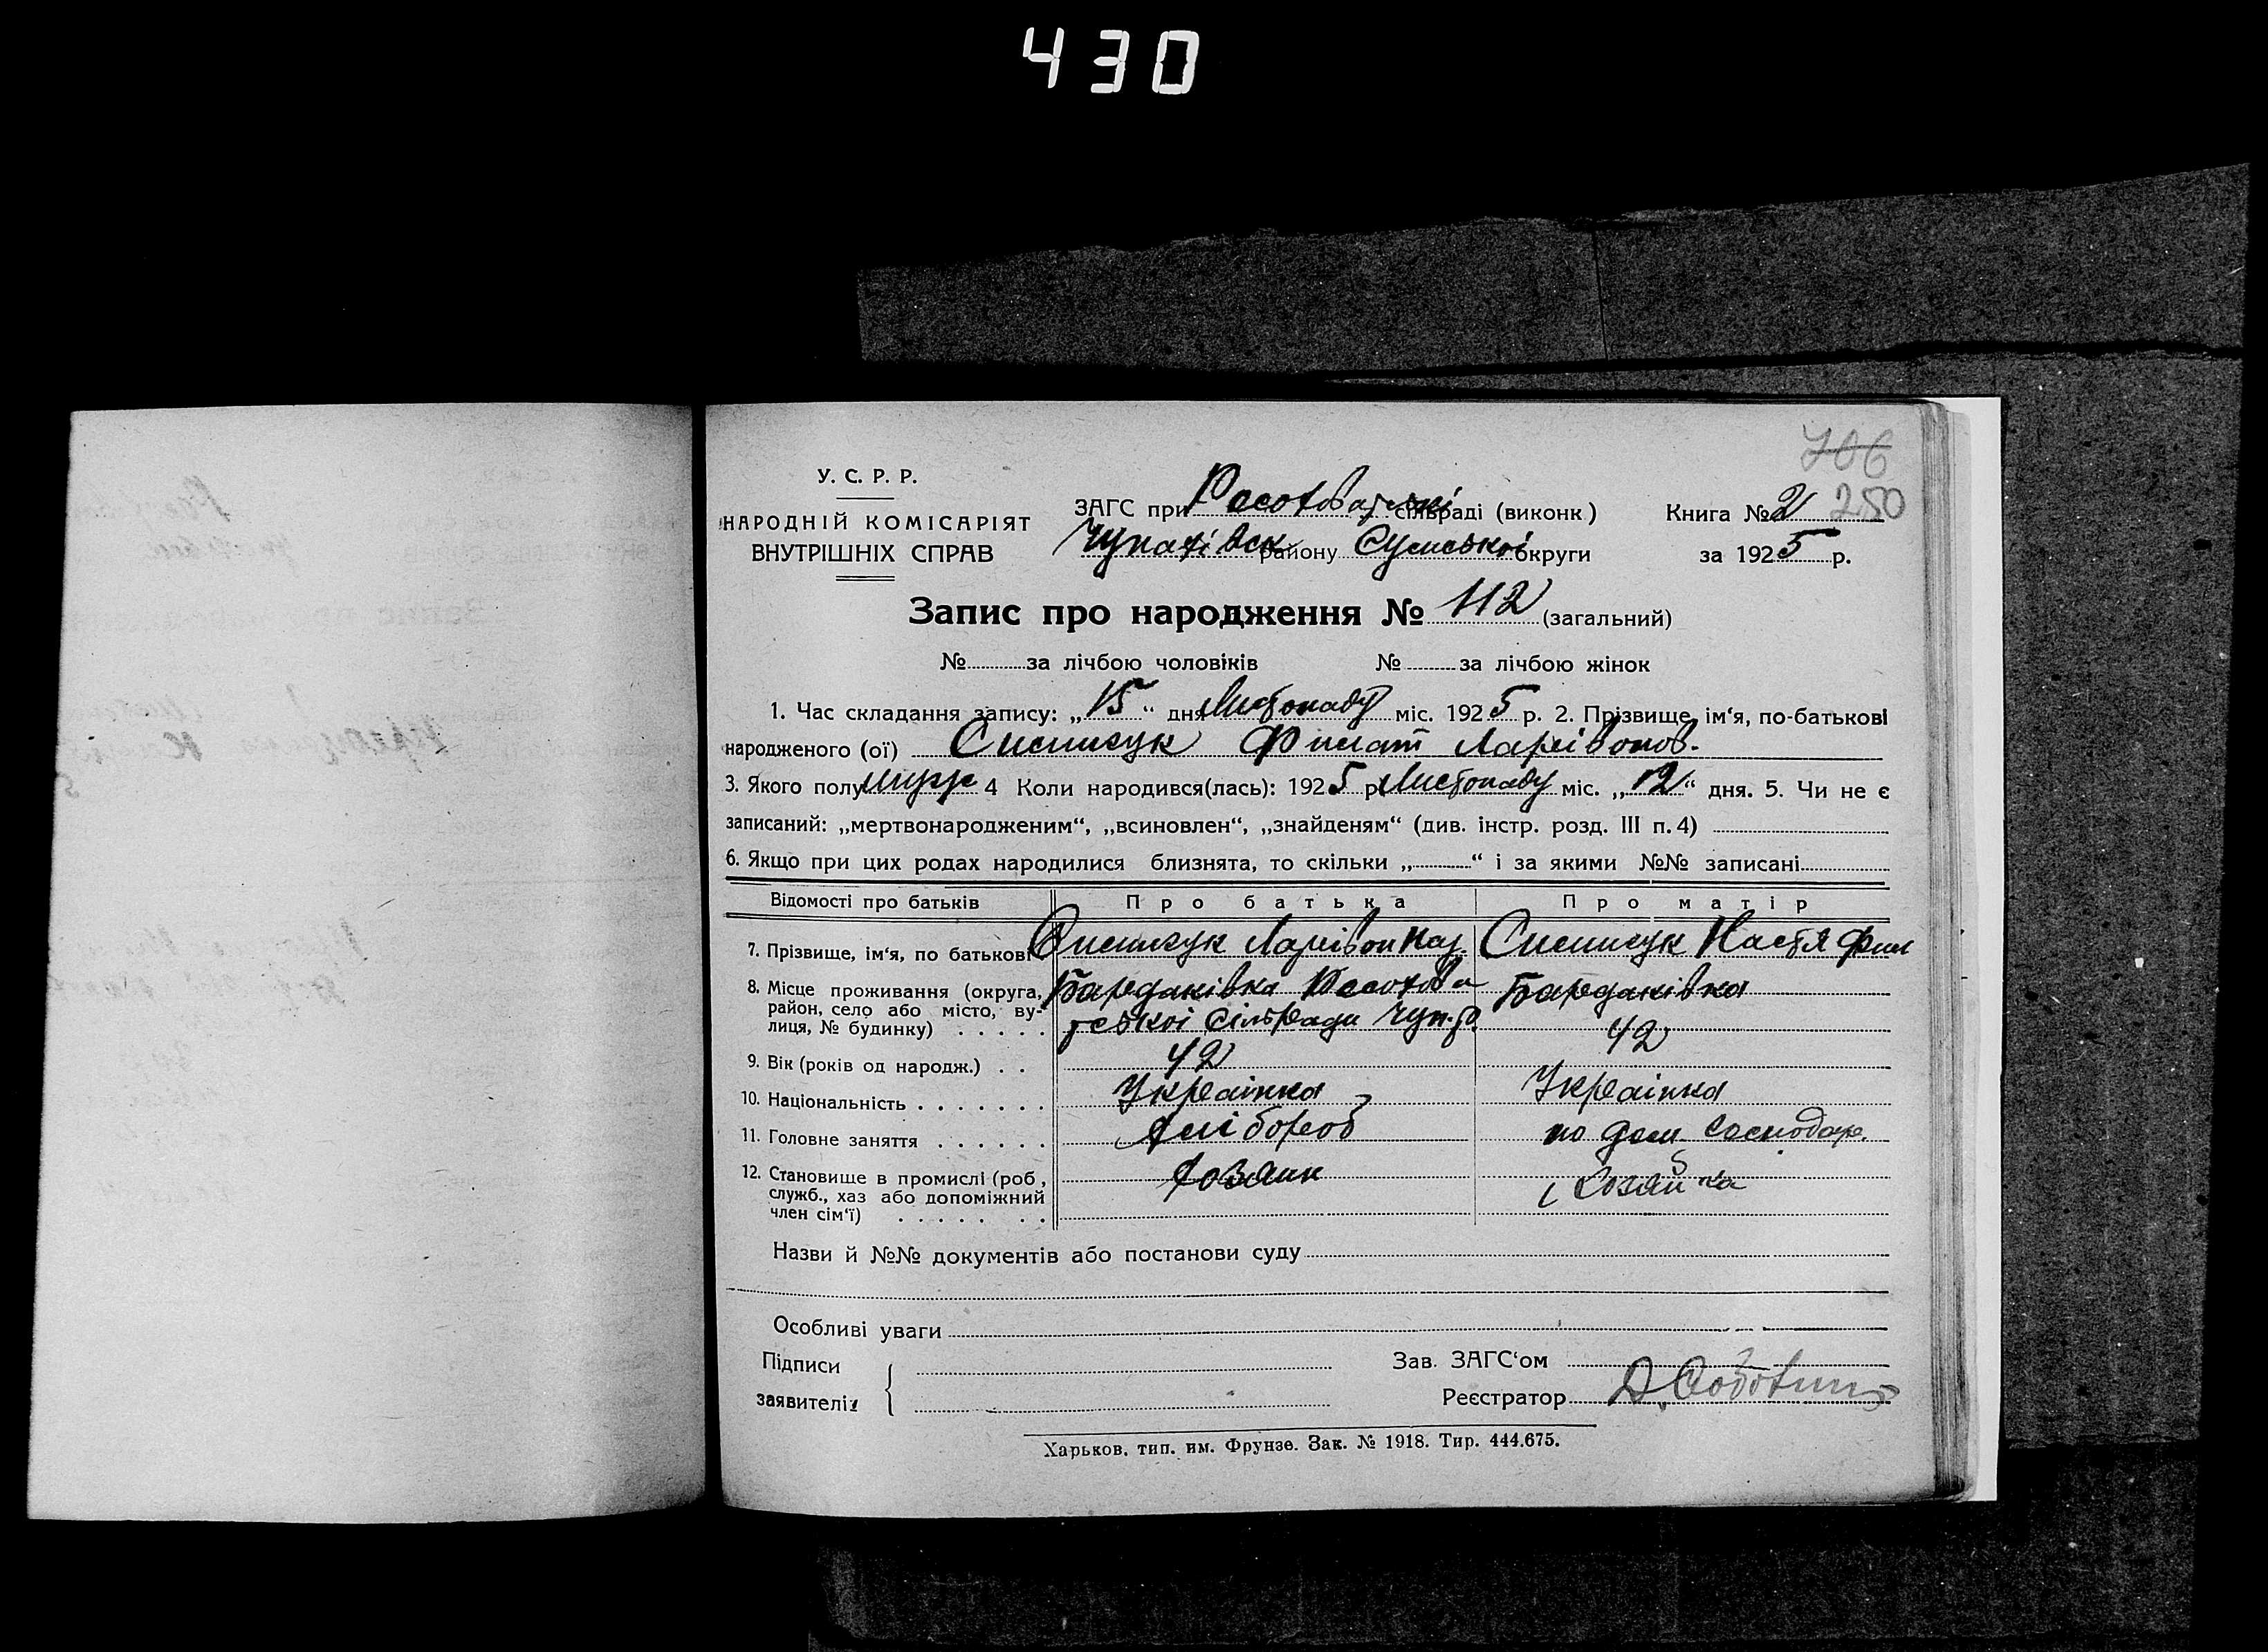 430
706
250
У. С. Р. Р.
НАРОДНІЙ КОМІСАРІЯТ
ВНУТРІШНІХ СПРАВ
ЗАГС при сільраді (виконк)
Чупахівск району Сумської округи
Книга № 2
за 1925 р.
Запис про народження № 112 (загальний)
№ за лічбою чоловіків № за лічбою жінок
1. Час складання запису: „15“ дня Листопаду міс. 1925 р. 2. Прізвище, ім‘я, по-батькові
народженого (ої) Филат Ларівонов.
3. Якого полу 4 Коли народився(лась): 1925 р. Листопаду міс. „12“ дня. 5. Чи не є
записаний: „мертвонародженим“, „всиновлен“, „знайденям“ (див. інстр. розд. III п. 4)
6. Якщо при цих родах народилися близнята, то скільки „ “ і за якими №№ записані
Відомості про батьків Про батька Про матір
7. Прізвище, ім‘я, по батькові Ларівон Настя Фил
8. Місце проживання (округа, район, село або місто, вулиця, № будинку) Бардаківка сільради Чуп. р. Бардаківка
9. Вік (років од народж.) 42 42
10. Національність Українка Українка
11. Головне заняття хлібороб по дом господар.
12. Становище в промислі (роб, служб., хаз або допоміжний член сім‘ї) хозяин хозяйка
Назви й №№ документів або постанови суду
Особливі уваги
Підписи
заявителів
Зав. ЗАГС‘ом
Реєстратор
Харьков, тип. им. Фрунзе. Зак. № 1918. Тир. 444.675.